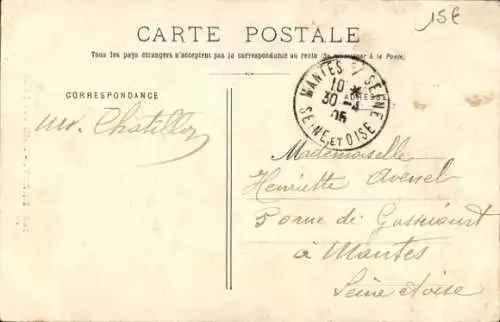 15€
CARTE POSTALE
Tous les pays étrangers n'acceptent pas la correspondance au recto (Se renseigner à la Poste)
CORRESPONDANCE
ADRESSE
MANTES S/ SEINE
10 *
30 -4
05
SEINE ET OISE
Chatillon
Mademoiselle
Henriette Avenel
5 rue de
à Mantes
Seine et oise